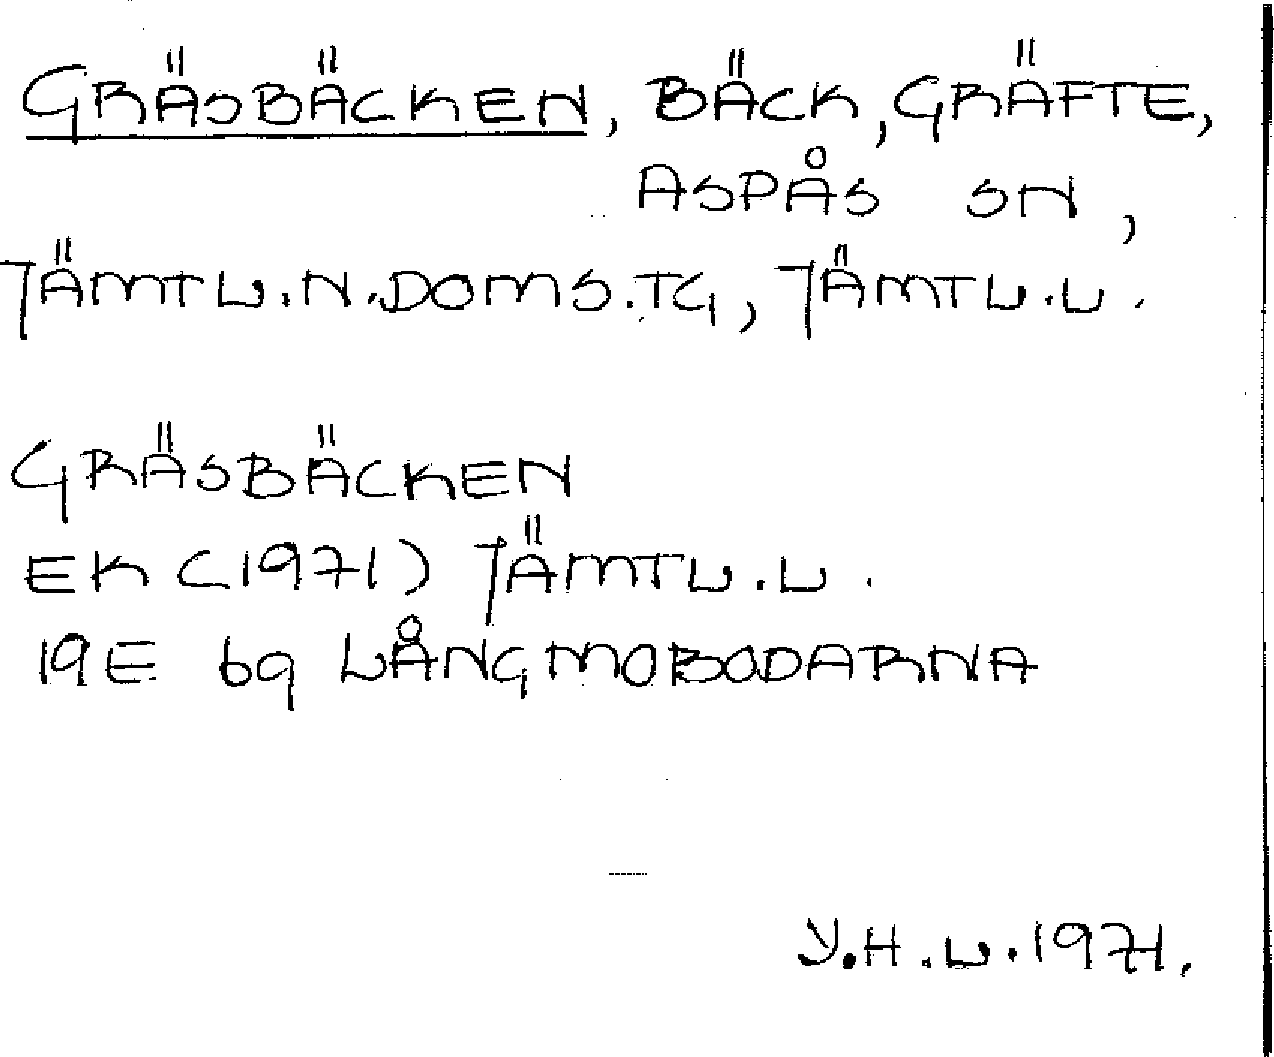 GRÄSBÄCKEN, BÄCK, GRÄFTE,
ASPÅS SN,
JÄMTL.N.DOMS.TG, JÄMTL.L.
GRÄSBÄCKEN
EK (1971) JÄMTL.L.
19E 6q LÅNGMOBODARNA
Y.H.L.1971.